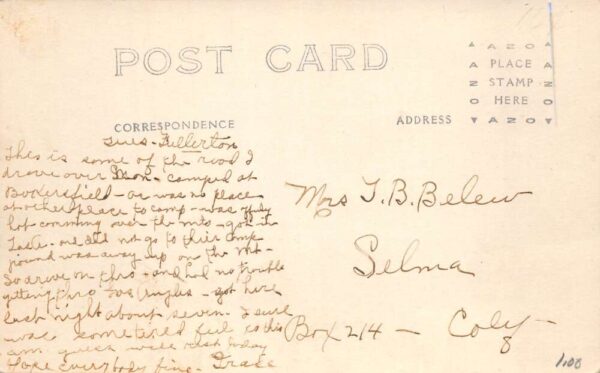 POST CARD
AZO
PLACE
STAMP
HERE
AZO
CORRESPONDENCE
ADDRESS
Tues - Fullerton
This is some of the road I
drove over Mon - camped at
- or was no place
at other place to camp - was
hot comming over the mts - got it
- we did not go to their camp
ground was away up on the Mt -
So drove on thro - and had no trouble
getting thro Los Angles - got here
last night about seven. I sure
was some tired feel o.k this
am guess will rest today
Hope Everybody fine - Grace
Mrs T. B. Belew
Selma
Box 214 - Calif
1.00